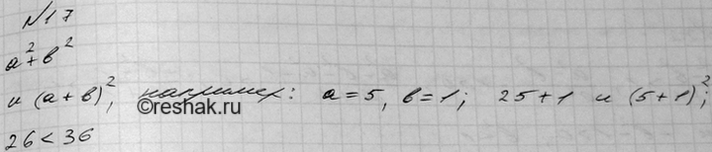 №17
a²+b²
и (a+b)², например: a=5, b=1; 25+1 и (5+1)²;
©reshak.ru
26<36